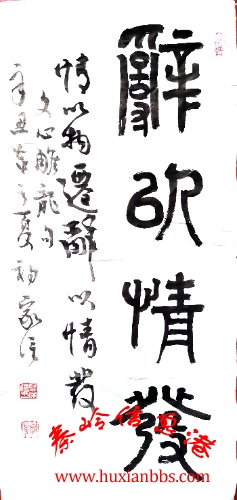 辭以情發
情以物遷辭以情發
文心雕龍句
辛丑革之夏初家信
秦岭信息港
www.huxianbbs.com